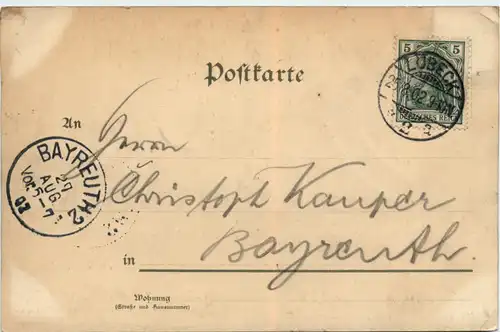 5 5
LÜBECK
2
DEUTSCHES REICH
Postkarte
An
Herrn
BAYREUTH 2
27
AUG
VOR. 5-7
02
Christoph Kauper
Bayreuth.
in
Wohnung
(Straße und Hausnummer)